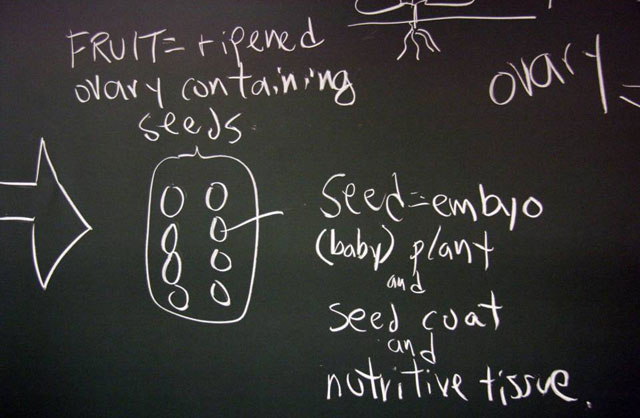 FRUIT = ripened
ovary containing
seeds
ovary
seed = embyo
(baby) plant
and
seed coat
and
nutritive tissue.